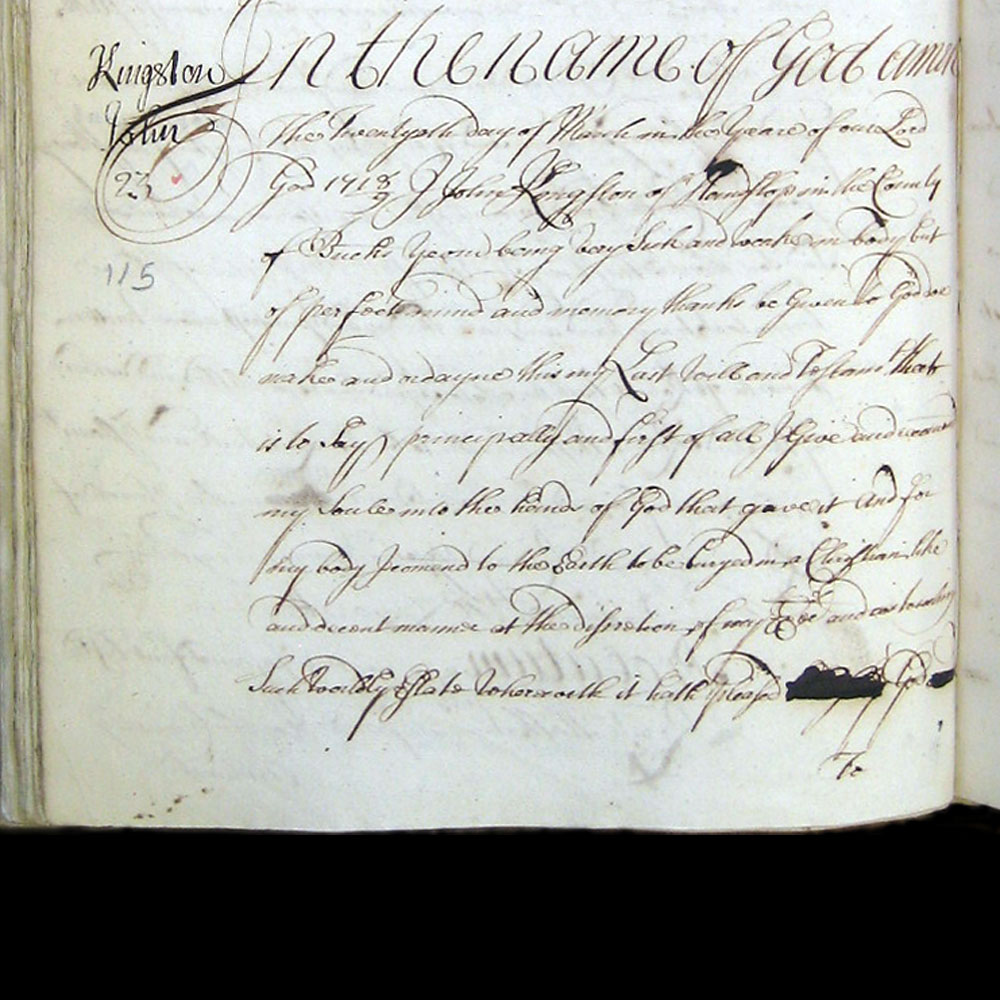 Kingston
John
23
115
In the name of God amen
The Twentyeth day of March in the Yeare of our Lord
God 1718/9 I John Kingston of Hanslop in the County
of Bucks Yeom being very Sick and weake in body but
of perfect mind and memory thanks be Given to God doe
make and ordayne this my Last Will and Testamt that
is to Say principally and first of all I Give and
my Soule into the hands of God that gave it And for
my body I comend to the Earth to be buryed in a Christian like
and decent manner at the discretion of my Exer and as touching
Such Worldly Estate wherewith it hath pleased God
To